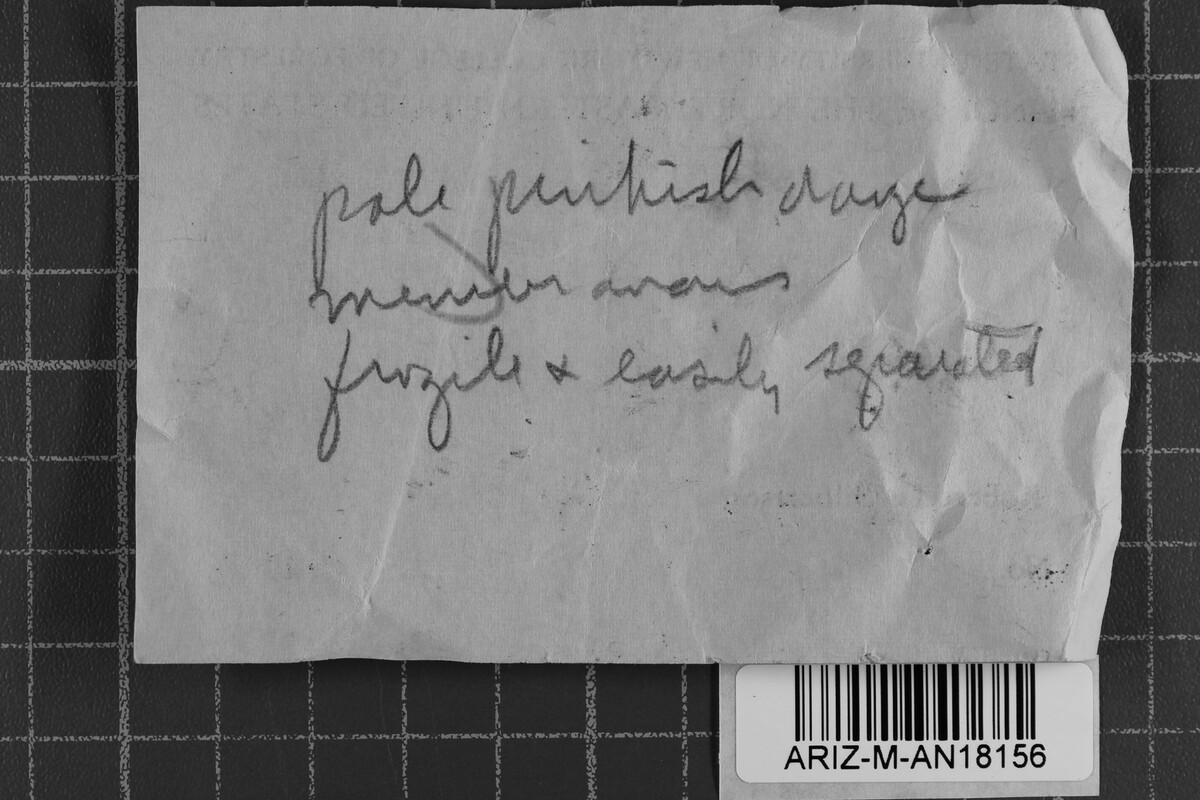 pale pinkish orange
membranous
fragile & easily separated
ARIZ-M-AN18156